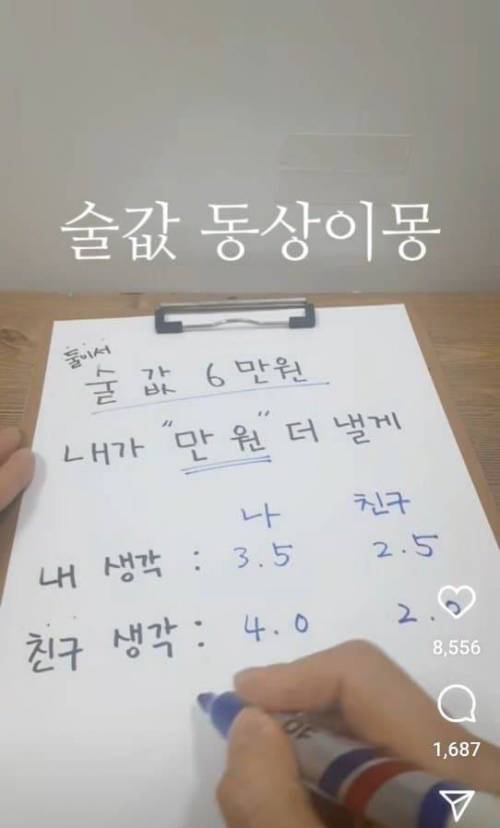 술값 동상이몽
둘이서
술 값 6만원
내가 "만 원" 더 낼게
나 친구
내 생각 : 3.5 2.5
친구 생각 : 4.0 2.0
8,556
1,687